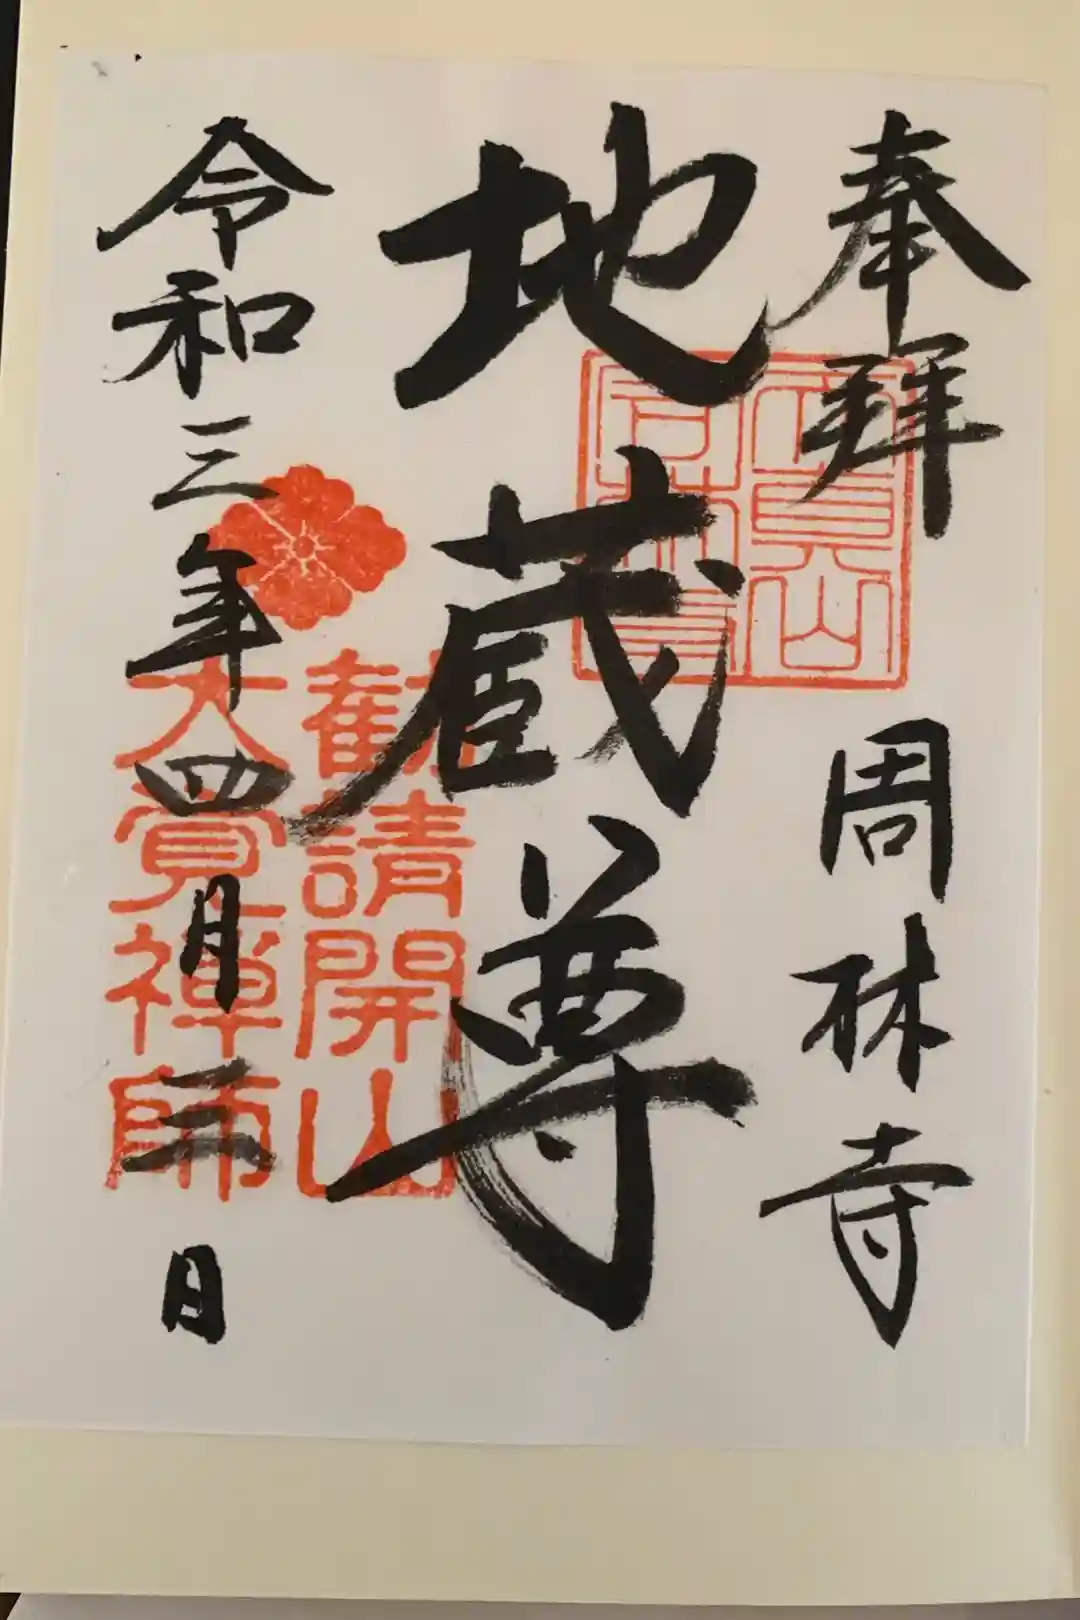 奉拜
周林寺
地蔵尊
勧請開山
大覺禅師
令和三年四月二日